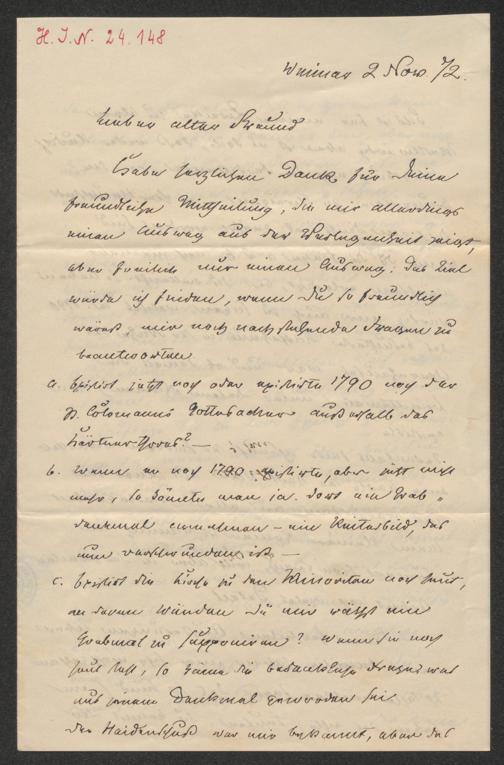 H. I. N. 24.148
Weimar 2 Nov. 72.
Lieber alter Freund
Habe herzlichen Dank für Deine
freundliche Mittheilung, die mir allerdings
einen Ausweg aus der Verlegenheit zeigt,
aber freilich nur einen Ausweg. Das Ziel
würde ich finden, wenn Du so freundlich
wärest, mir noch nachstehende Fragen zu
beantworten
a. Existirt jetzt noch oder existirte 1790 noch der
St. Colomanns Gottesacker außerhalb des
Kärtnerthores? —
b. Wenn er noch 1790 existirte, aber jetzt nicht
mehr, so könnte man ja dort ein Grab-
denkmal annehmen – ein Reiterbild, das
nun verschwunden ist —
c. Existirt die Kirche zu den Minoriten noch heut,
an deren Wänden Du mir räthst ein
Grabmal zu supponiren? Wenn sie noch
heut steht, so käme die bedenkliche Frage, was
aus jenem Denkmal geworden sei
Der Haidenschuß war mir bekannt, aber das